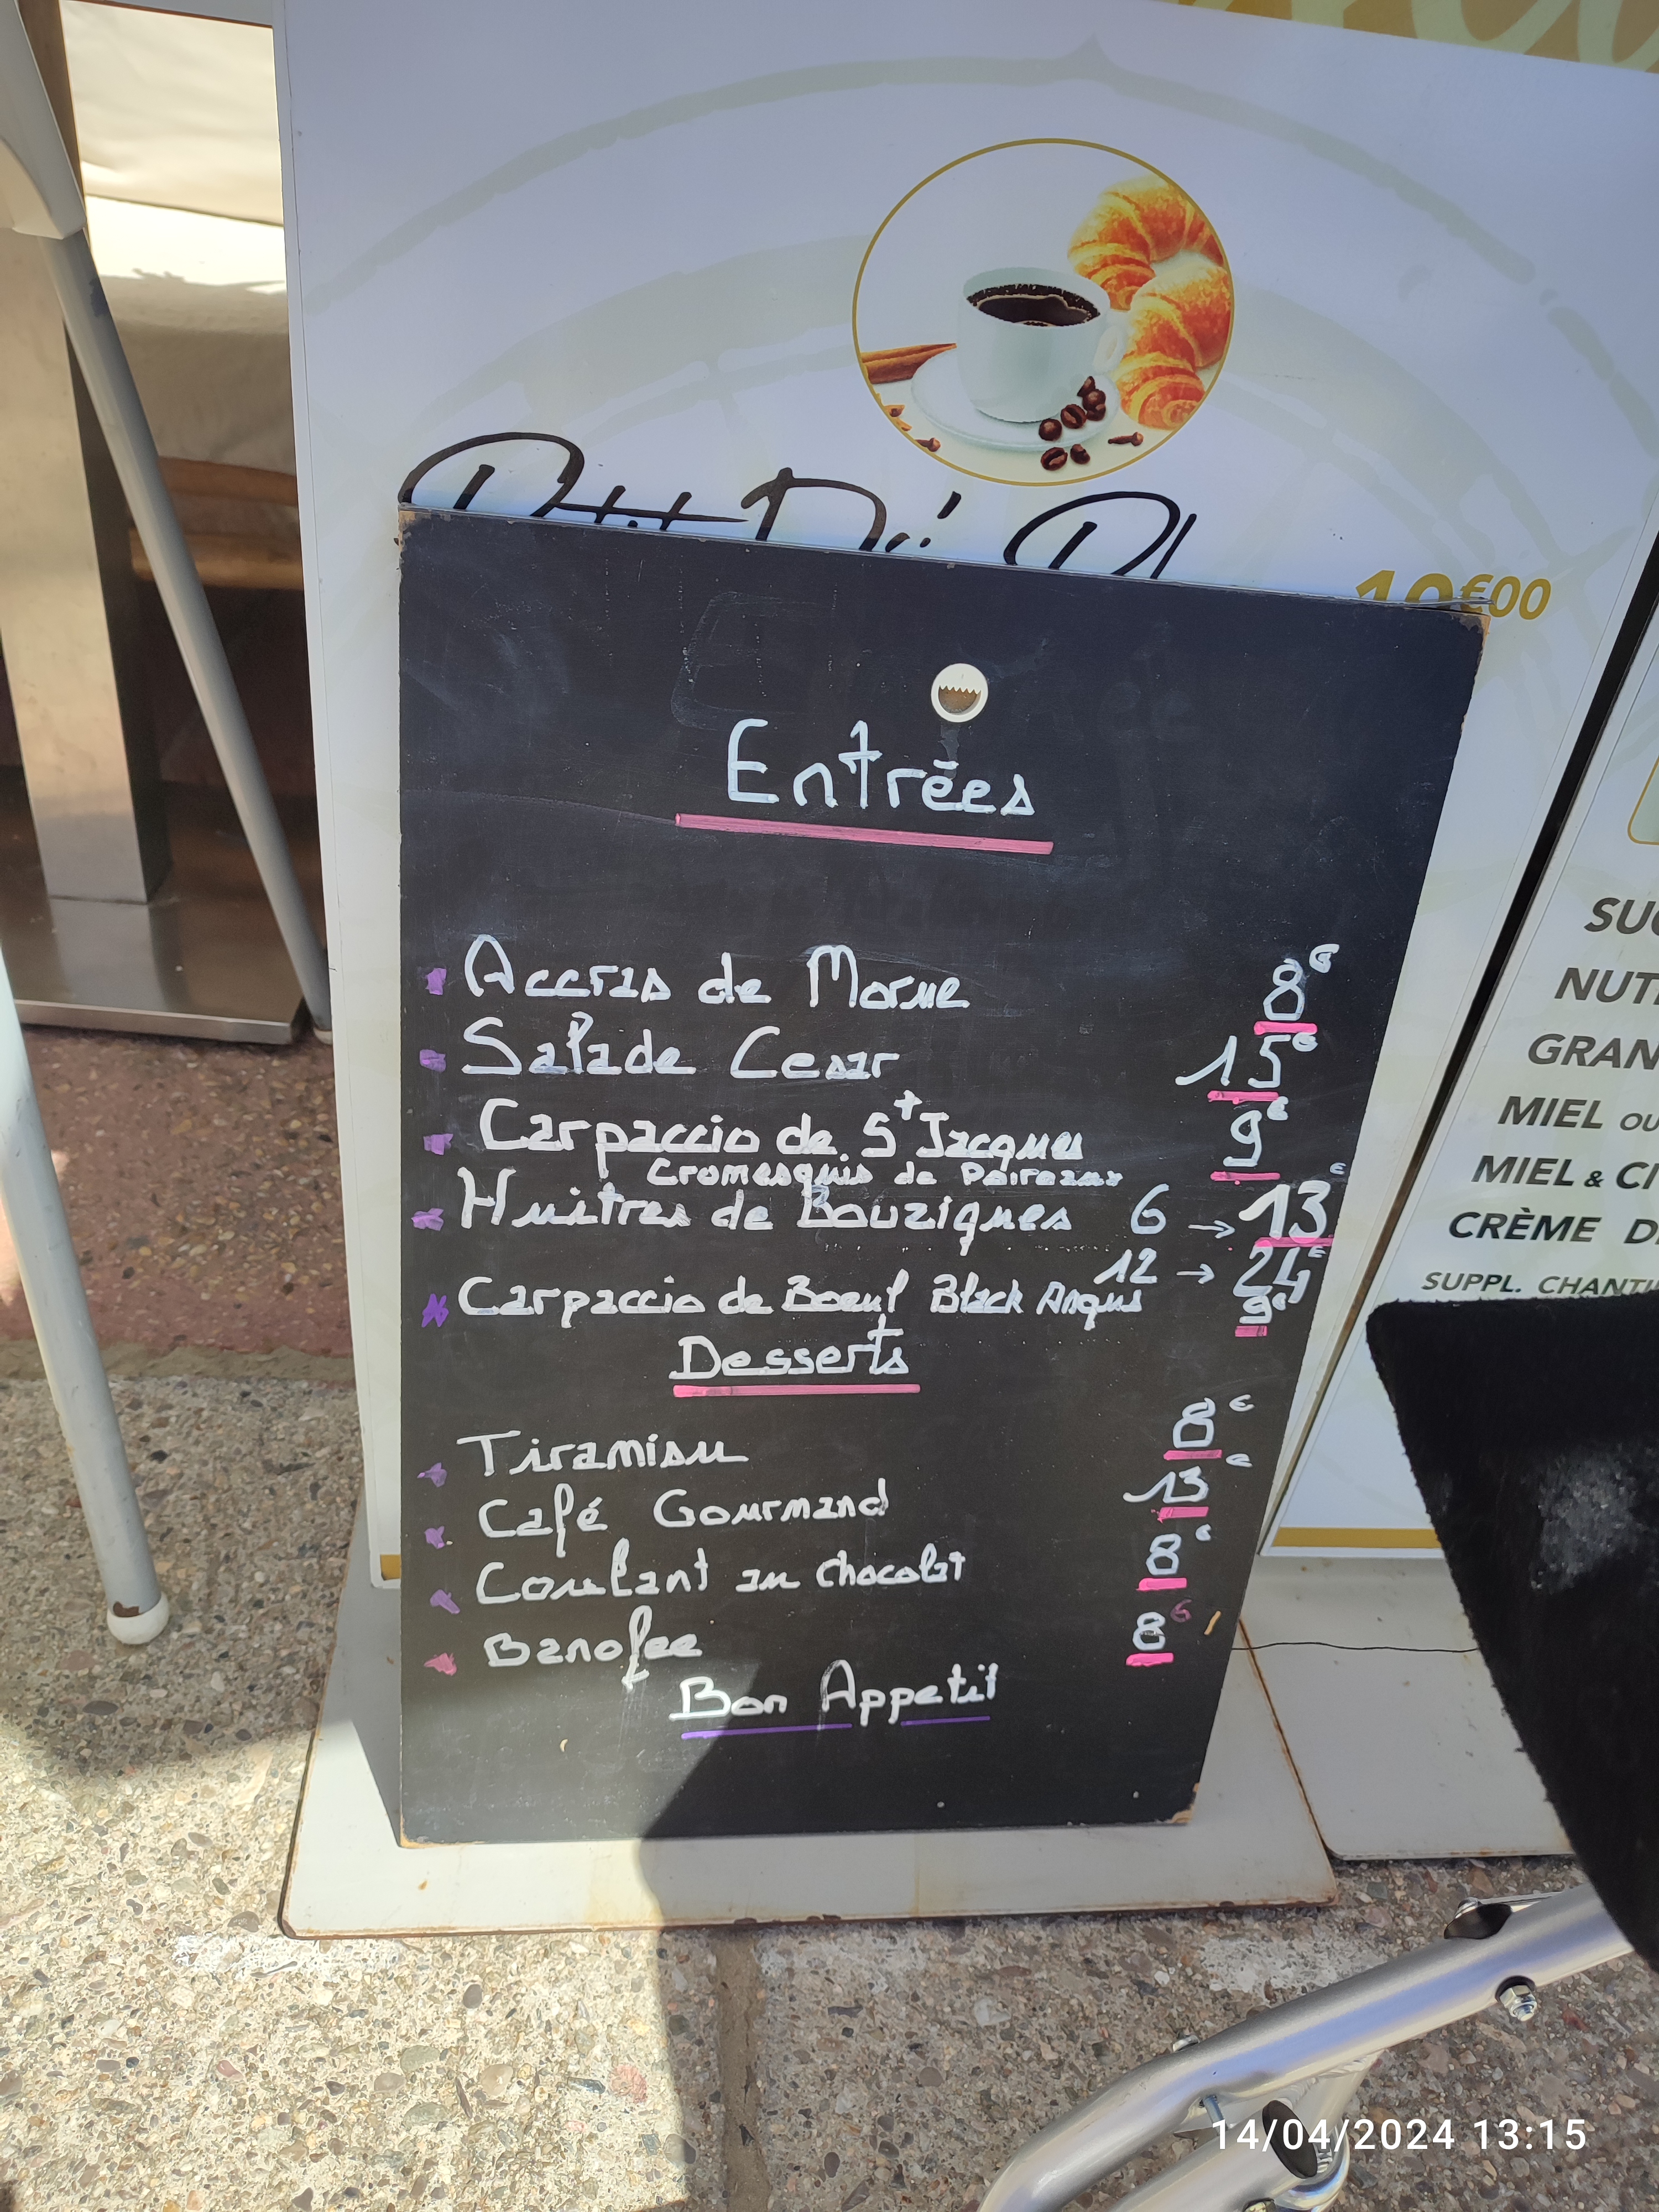 10€00
Entrées
Accras de Morue 8€
Salade Cesar 15€
Carpaccio de St Jacques 9€
Cromesquis de Poireaux
Huitres de Bouzigues 6 → 13€
12 → 24€
Carpaccio de Boeuf Black Angus 9€
Desserts
Tiramisu 8€
Café Gourmand 13€
Coulant au chocolat 8€
Banofee 8€
Bon Appetit
SUC
NUT
GRAN
MIEL OU
MIEL & CI
CRÈME D
SUPPL. CHANTI
14/04/2024 13:15